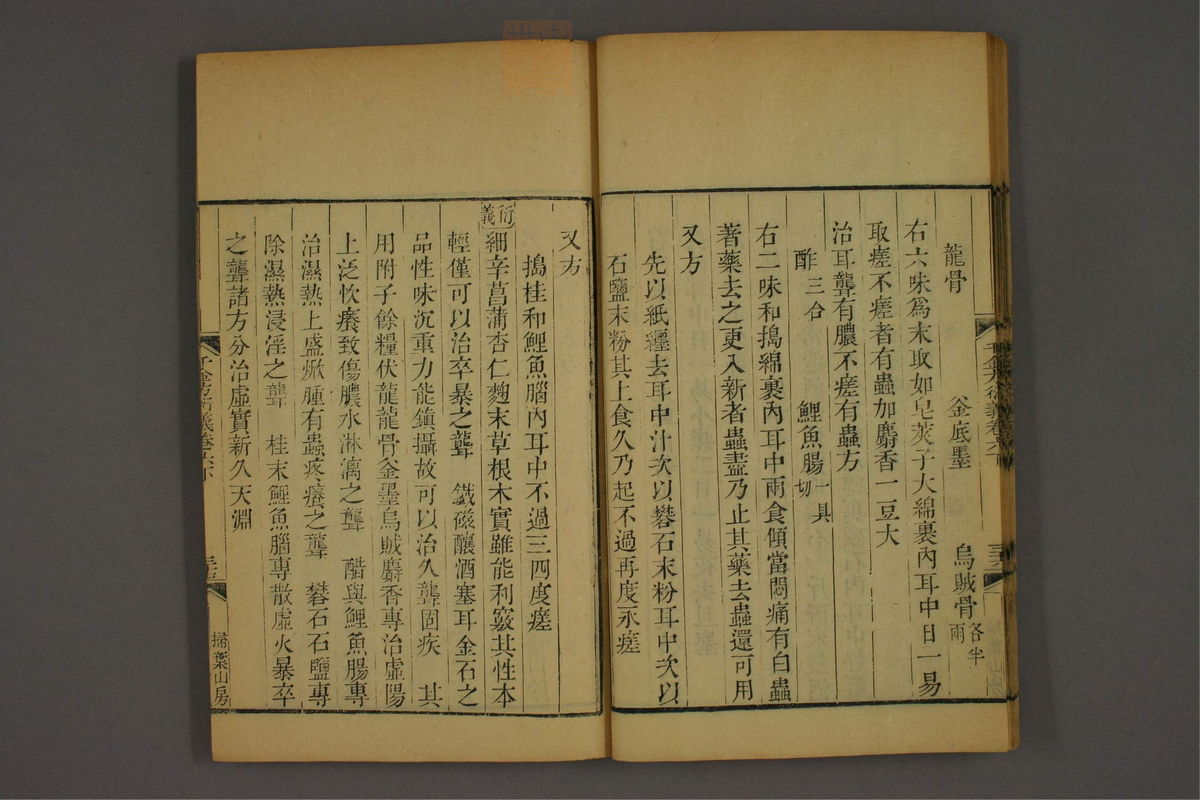 龍骨　釜底墨　烏賊骨各半兩
右六味爲末取如皂莢子大綿裹內耳中日一易
取瘥不瘥者有蟲加麝香一豆大
治耳聾有膿不瘥有蟲方
酢三合　鯉魚腸一具切
右二味和搗綿裹內耳中兩食傾當悶痛有白蟲
著藥去之更入新者蟲盡乃止其藥去蟲還可用
又方
先以紙纏去耳中汁次以礬石末粉耳中次以
石鹽末粉其上食久乃起不過再度永瘥
千金方衍義卷六下
又方
搗桂和鯉魚腦內耳中不過三四度瘥
衍義
細辛菖蒲杏仁麴末草根木實雖能利竅其性本
輕僅可以治卒暴之聾　鐵磁釀酒塞耳金石之
品性味沉重力能鎮攝故可以治久聾固疾　其
用附子餘糧伏龍龍骨釜墨烏賊麝香專治虛陽
上泛忺癢致傷膿水淋漓之聾　醋與鯉魚腸專
治濕熱上盛焮腫有蟲疼癢之聾　礬石石鹽專
除濕熱浸淫之聾　桂末鯉魚腦專散虛火暴卒
之聾諸方分治虛實新久天淵
千金方衍義卷六下
掃葉山房